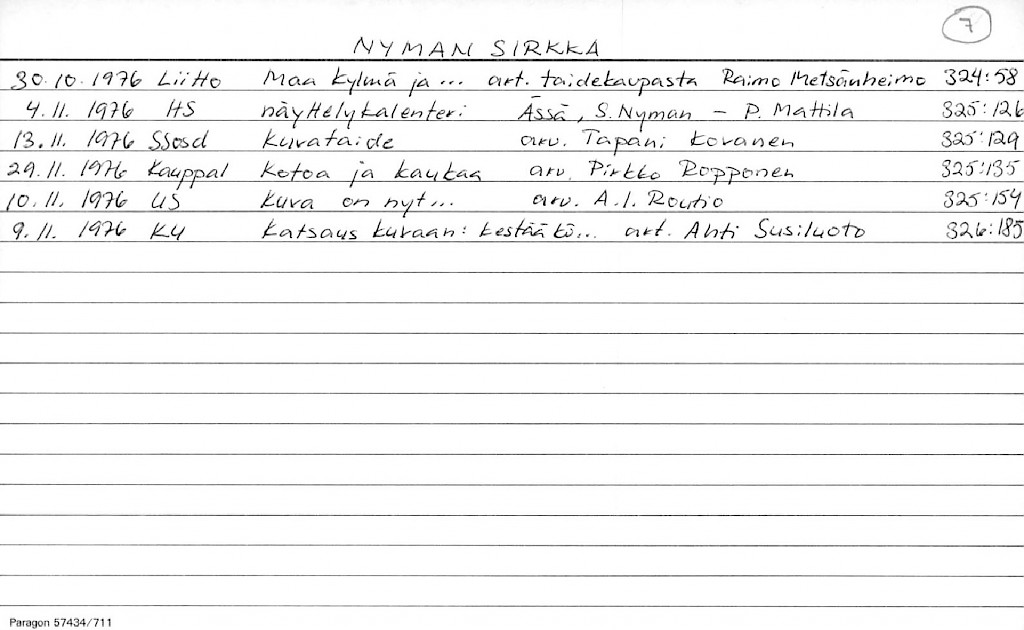 7
NYMAN SIRKKA
30.10.1976 Liitto Maa kylmä ja ... art. taidekaupasta Raimo Metsänheimo 324:58
4.11. 1976 HS näyttelykalenteri Ässä, S. Nyman - P. Mattila 325:126
13.11. 1976 SSosd Kuvataide arv. Tapani Kovanen 325:129
29.11. 1976 Kauppal Kotoa ja kaukaa arv. Pirkko Ropponen 325:135
10.11. 1976 US Kuva on nyt... arv. A.I. Routio 325:154
9.11. 1976 KU Katsaus kuvaan: kestääkö... art. Ahti Susiluoto 326:185
Paragon 57434/711